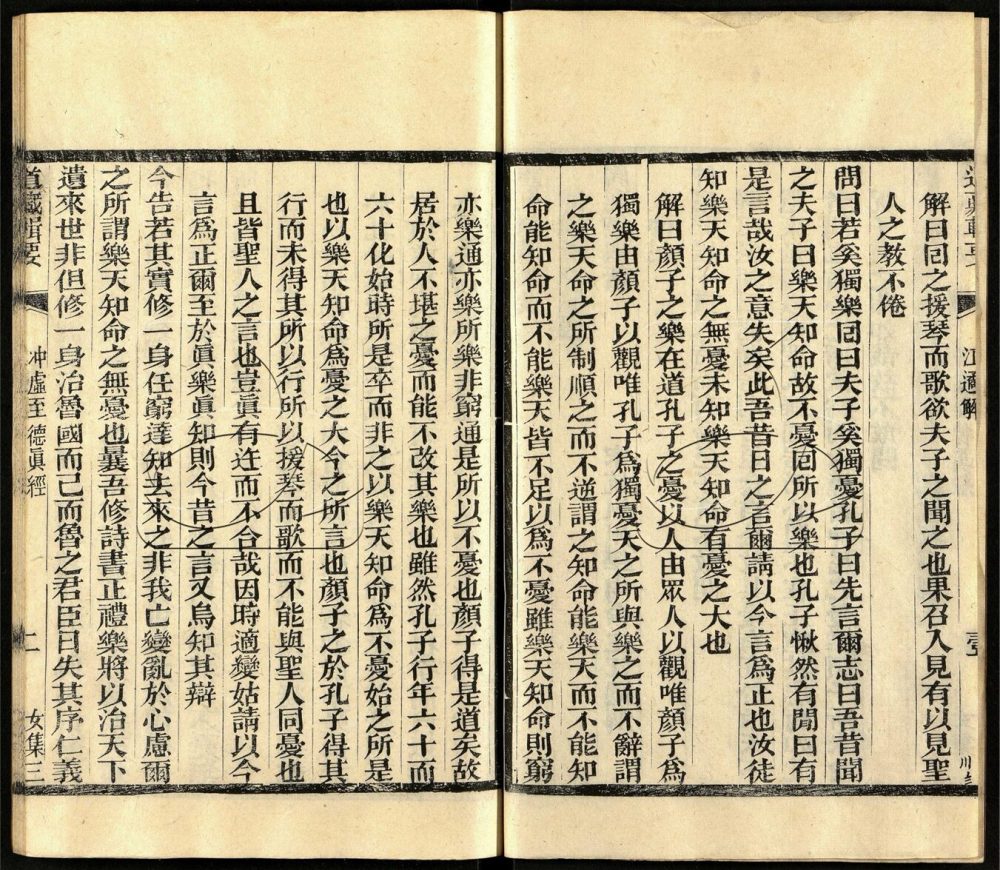 解曰回之援琴而歌欲夫子之聞之也果召入見有以見聖
人之教不倦
問曰若奚獨樂回曰夫子奚獨憂孔子曰先言爾志曰吾昔聞
之夫子曰樂天知命故不憂回所以樂也孔子愀然有閒曰有
是言哉汝之意失矣此吾昔日之言爾請以今言爲正也汝徒
知樂天知命之無憂未知樂天知命有憂之大也
解曰顏子之樂在道孔子之憂以人由眾人以觀唯顏子爲
獨樂由顏子以觀唯孔子爲獨憂天之所與樂之而不辭謂
之樂天命之所制順之而不逆謂之知命能樂天而不能知
命能知命而不能樂天皆不足以爲不憂雖樂天知命則窮
亦樂通亦樂所樂非窮通是所以不憂也顏子得是道矣故
居於人不堪之憂而能不改其樂也雖然孔子行年六十而
六十化始時所是卒而非之以樂天知命爲不憂始之所是
也以樂天知命爲憂之大今之所言也顏子之於孔子得其
行而未得其所以行所以援琴而歌而不能與聖人同憂也
且皆聖人之言也豈眞有迕而不合哉因時適變姑請以今
言爲正爾至於眞樂眞知則今昔之言又烏知其辯
今告若其實修一身任窮達知去來之非我亡變亂於心慮爾
之所謂樂天知命之無憂也曩吾修詩書正禮樂將以治天下
遺來世非但修一身治魯國而已而魯之君臣日失其序仁義
道藏輯要
冲虛至德眞經
女集三
江遹解